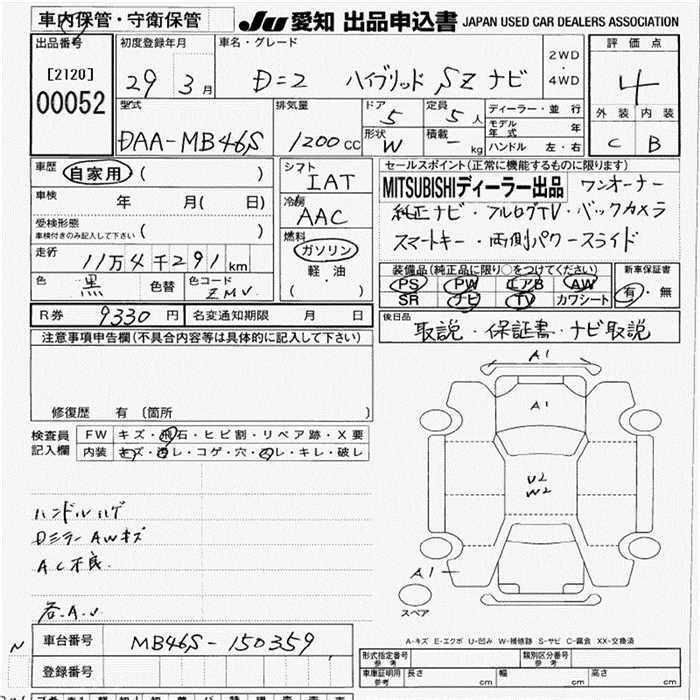 車内保管・守衛保管
JU 愛知 出品申込書 JAPAN USED CAR DEALERS ASSOCIATION
出品番号
[2120]
00052
初度登録年月
29 3月
車名・グレード
D=2 ハイブリッド SZ ナビ
2WD
・
4WD
評価点
4
外装 内装
C B
型式
DAA-MB46S
排気量
1200cc
ドア
5
定員
5人
形状
W
積載
- kg
ディーラー・並行
モデル年式 年
ハンドル 左・右
車歴 自家用 ( )
車検 年 月( 日)
受検形態
車検付きのみ記入して下さい ( )
走行 11万4千291km
色 黒 色替 色コード ZMV
シフト
IAT
冷房
AAC
燃料
ガソリン
軽・油
( )
セールスポイント(正常に機能するものに限ります)
MITSUBISHIディーラー出品 ワンオーナー
純正ナビ・フルセグTV・バックカメラ
スマートキー・両側パワースライド
装備品(純正品に限り○をつけてください)
PS PW エアB AW
SR ナビ TV カワシート
新車保証書
有・無
R券 9330円 名変通知期限 月 日
後日品
取説・保証書・ナビ取説
注意事項申告欄(不具合内容等は具体的に記入して下さい)
修復歴 有 〔箇所 〕
検査員
記入欄
FW キズ・飛石・ヒビ割・リペア跡・X要
内装 キズ・汚レ・コゲ・穴・スレ・キレ・破レ
ハンドルハゲ
Dミラー AWキズ
AC不良
各A.U
A1
A1
U2
W2
A1
スペア
A-キズ E-エクボ U-凹み W-補修跡 S-サビ C-腐食 XX-交換済
N
車台番号 MB46S-150359
登録番号
形式指定番号
参考
類別区分番号
参考
車庫証明用
参考
長さ cm 幅 cm 高さ cm